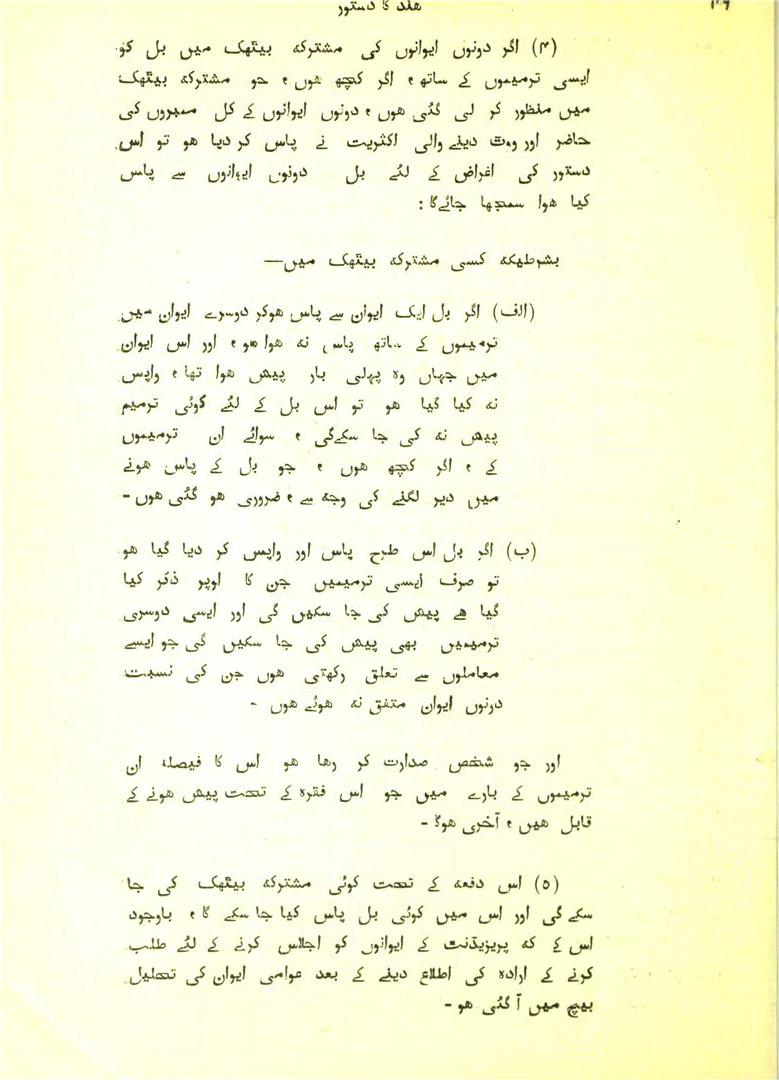 ہند کا دستور
۴۶
(۴) اگر دونوں ایوانوں کی مشترکہ بیٹھک میں بل کو
ایسی ترمیموں کے ساتھ، اگر کچھ ہوں، جو مشترکہ بیٹھک
میں منظور کر لی گئی ہوں، دونوں ایوانوں کے کل ممبروں کی
حاضر اور ووٹ دینے والی اکثریت نے پاس کر دیا ہو تو اس
دستور کی اغراض کے لئے بل دونوں ایوانوں سے پاس
کیا ہوا سمجھا جائےگا:
بشرطیکہ کسی مشترکہ بیٹھک میں—
(الف) اگر بل ایک ایوان سے پاس ہوکر دوسرے ایوان میں
ترمیموں کے ساتھ پاس نہ ہوا ہو، اور اس ایوان
میں جہاں وہ پہلی بار پیش ہوا تھا، واپس
نہ کیا گیا ہو تو اس بل کے لئے کوئی ترمیم
پیش نہ کی جا سکےگی، سوائے ان ترمیموں
کے، اگر کچھ ہوں، جو بل کے پاس ہونے
میں دیر لگنے کی وجہ سے، ضروری ہو گئی ہوں -
(ب) اگر بل اس طرح پاس اور واپس کر دیا گیا ہو
تو صرف ایسی ترمیمیں جن کا اوپر ذکر کیا
گیا ہے پیش کی جا سکیں گی اور ایسی دوسری
ترمیمیں بھی پیش کی جا سکیں گی جو ایسے
معاملوں سے تعلق رکھتی ہوں جن کی نسبت
دونوں ایوان متفق نہ ہوئے ہوں -
اور جو شخص صدارت کر رہا ہو اس کا فیصلہ ان
ترمیموں کے بارے میں جو اس فقرہ کے تحت پیش ہونے کے
قابل ہیں، آخری ہوگا -
(۵) اس دفعہ کے تحت کوئی مشترکہ بیٹھک کی جا
سکے گی اور اس میں کوئی بل پاس کیا جا سکے گا، باوجود
اس کے کہ پریزیڈنٹ کے ایوانوں کو اجلاس کرنے کے لئے طلب
کرنے کے ارادہ کی اطلاع دینے کے بعد عوامی ایوان کی تحلیل
بیچ میں آ گئی ہو -